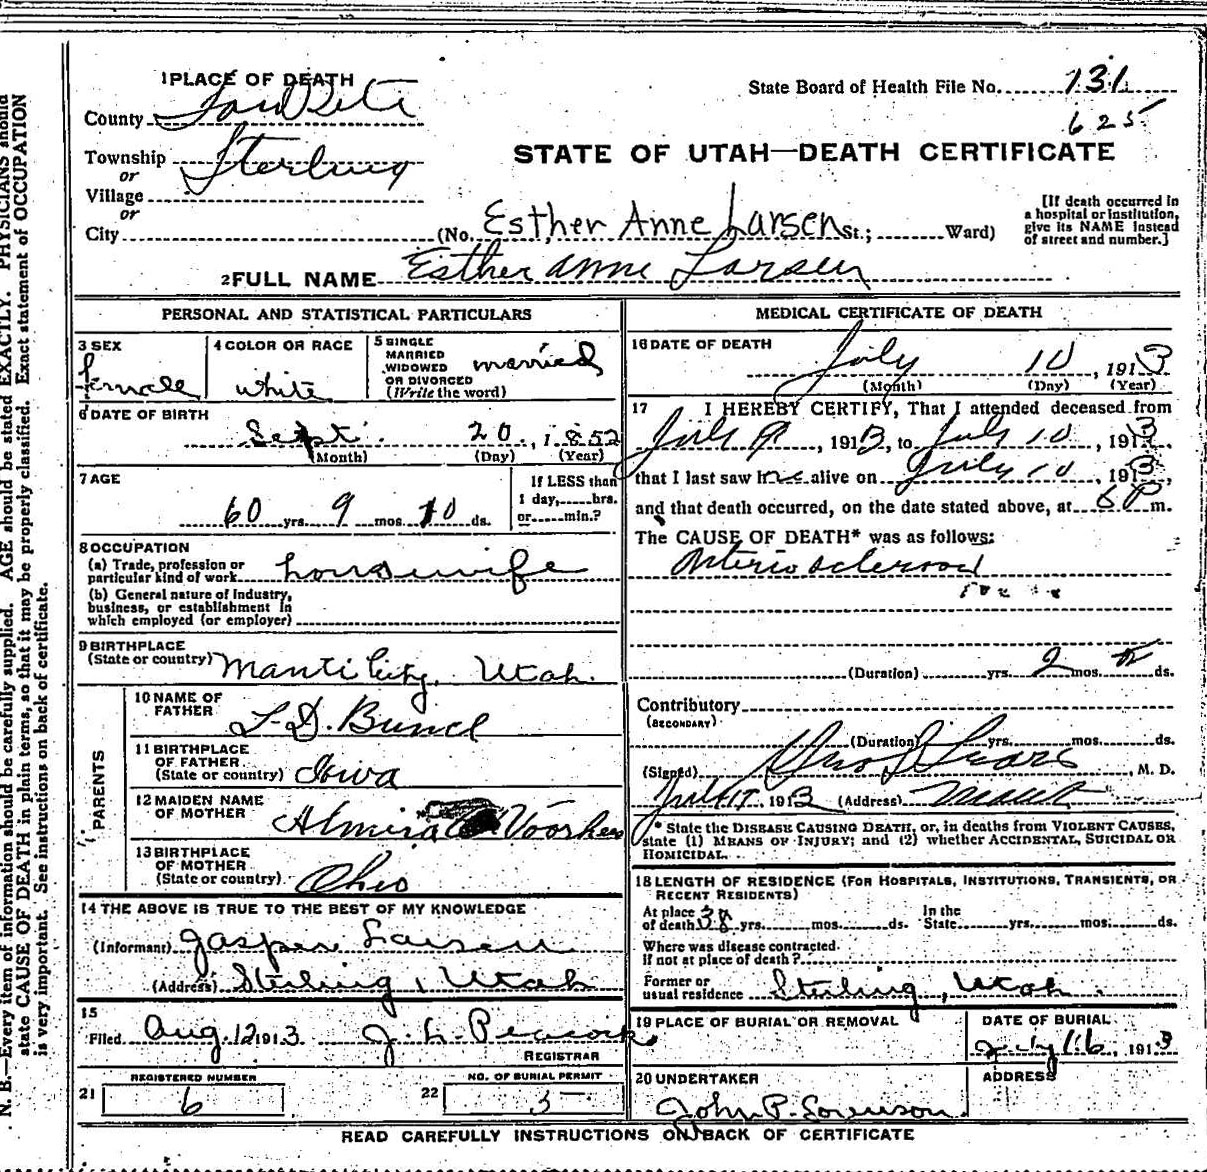 1 PLACE OF DEATH
County SanPete
State Board of Health File No. 131
625
Township Sterling
or
Village
or
City
STATE OF UTAH—DEATH CERTIFICATE
(No. Esther Anne Larsen St.; Ward)
[If death occurred in
a hospital or institution,
give its NAME instead
of street and number.]
2 FULL NAME Esther Anne Larsen
PERSONAL AND STATISTICAL PARTICULARS
3 SEX
female
4 COLOR OR RACE
white
5 SINGLE
MARRIED
WIDOWED
OR DIVORCED
(Write the word)
married
6 DATE OF BIRTH
Sept. 20, 1852
(Month) (Day) (Year)
7 AGE
60 yrs. 9 mos. 10 ds.
If LESS than
1 day, hrs.
or min.?
8 OCCUPATION
(a) Trade, profession or
particular kind of work housewife
(b) General nature of industry,
business, or establishment in
which employed (or employer)
9 BIRTHPLACE
(State or country) Manti City, Utah.
PARENTS
10 NAME OF
FATHER L. D. Bunce
11 BIRTHPLACE
OF FATHER
(State or country) Iowa
12 MAIDEN NAME
OF MOTHER Almira Voorhes
13 BIRTHPLACE
OF MOTHER
(State or country) Ohio
14 THE ABOVE IS TRUE TO THE BEST OF MY KNOWLEDGE
(Informant) Jasper Larsen
(Address) Sterling, Utah
15
Filed Aug. 12 1913 J. L. Peacock
REGISTRAR
21 REGISTERED NUMBER
6
22 NO. OF BURIAL PERMIT
5
MEDICAL CERTIFICATE OF DEATH
16 DATE OF DEATH
July 10, 1913
(Month) (Day) (Year)
17 I HEREBY CERTIFY, That I attended deceased from
July 9, 1913, to July 10, 1913,
that I last saw her alive on July 10, 1913,
and that death occurred, on the date stated above, at 6 P m.
The CAUSE OF DEATH* was as follows:
Arterio
(Duration) yrs. 2 mos. ds.
Contributory
(SECONDARY)
(Duration) yrs. mos. ds.
(Signed) Sears, M. D.
July 1913 (Address) Manti
* State the DISEASE CAUSING DEATH, or, in deaths from VIOLENT CAUSES,
state (1) MEANS OF INJURY; and (2) whether ACCIDENTAL, SUICIDAL OR
HOMICIDAL.
18 LENGTH OF RESIDENCE (FOR HOSPITALS, INSTITUTIONS, TRANSIENTS, OR
RECENT RESIDENTS)
At place
of death 38 yrs. mos. ds.
In the
State yrs. mos. ds.
Where was disease contracted
if not at place of death?
Former or
usual residence Sterling, Utah.
19 PLACE OF BURIAL OR REMOVAL
DATE OF BURIAL
July 16, 1913
20 UNDERTAKER
John P. Sorenson.
ADDRESS
READ CAREFULLY INSTRUCTIONS ON BACK OF CERTIFICATE
N. B.—Every item of information should be carefully supplied. AGE should be stated EXACTLY. PHYSICIANS should
state CAUSE OF DEATH in plain terms, so that it may be properly classified. Exact statement of OCCUPATION
is very important. See instructions on back of certificate.